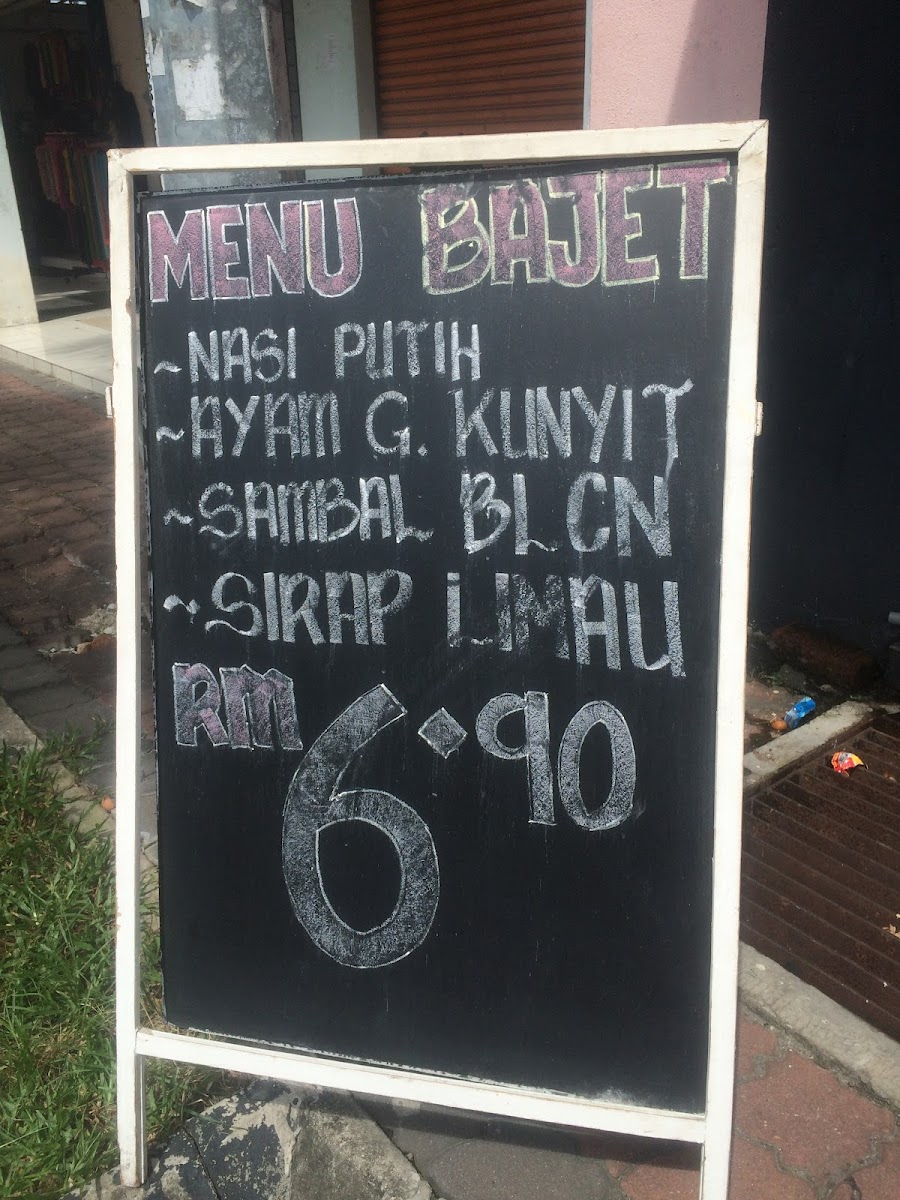 MENU BAJET
~NASI PUTIH
~AYAM G. KUNYIT
~SAMBAL BLCN
~SIRAP LIMAU
RM 6.90